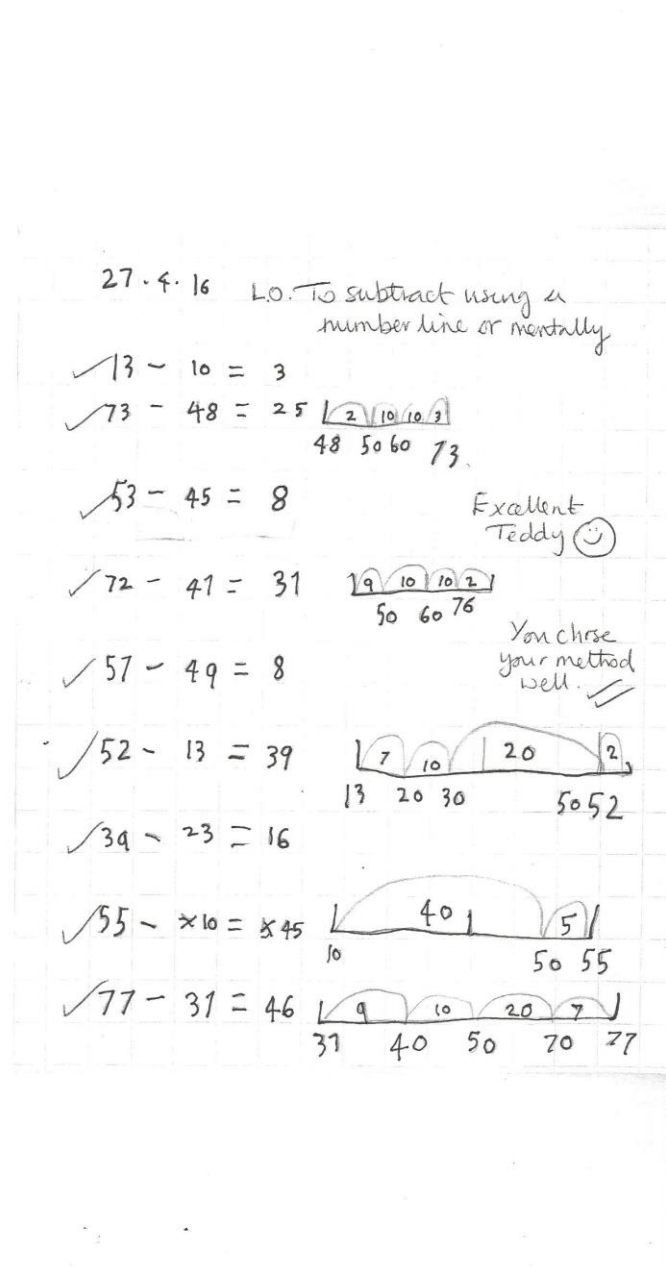 27.4.16 L.O. To subtract using a
number line or mentally
13 - 10 = 3
73 - 48 = 25 2 10 10 3
48 50 60 73.
53 - 45 = 8
Excellent
Teddy
72 - 41 = 31 9 10 10 2
50 60 76
You chose
your method
well.
57 - 49 = 8
52 - 13 = 39 7 10 20 2
13 20 30 50 52
39 - 23 = 16
55 - x10 = x45 40 5
10 50 55
77 - 31 = 46 9 10 20 7
31 40 50 70 77